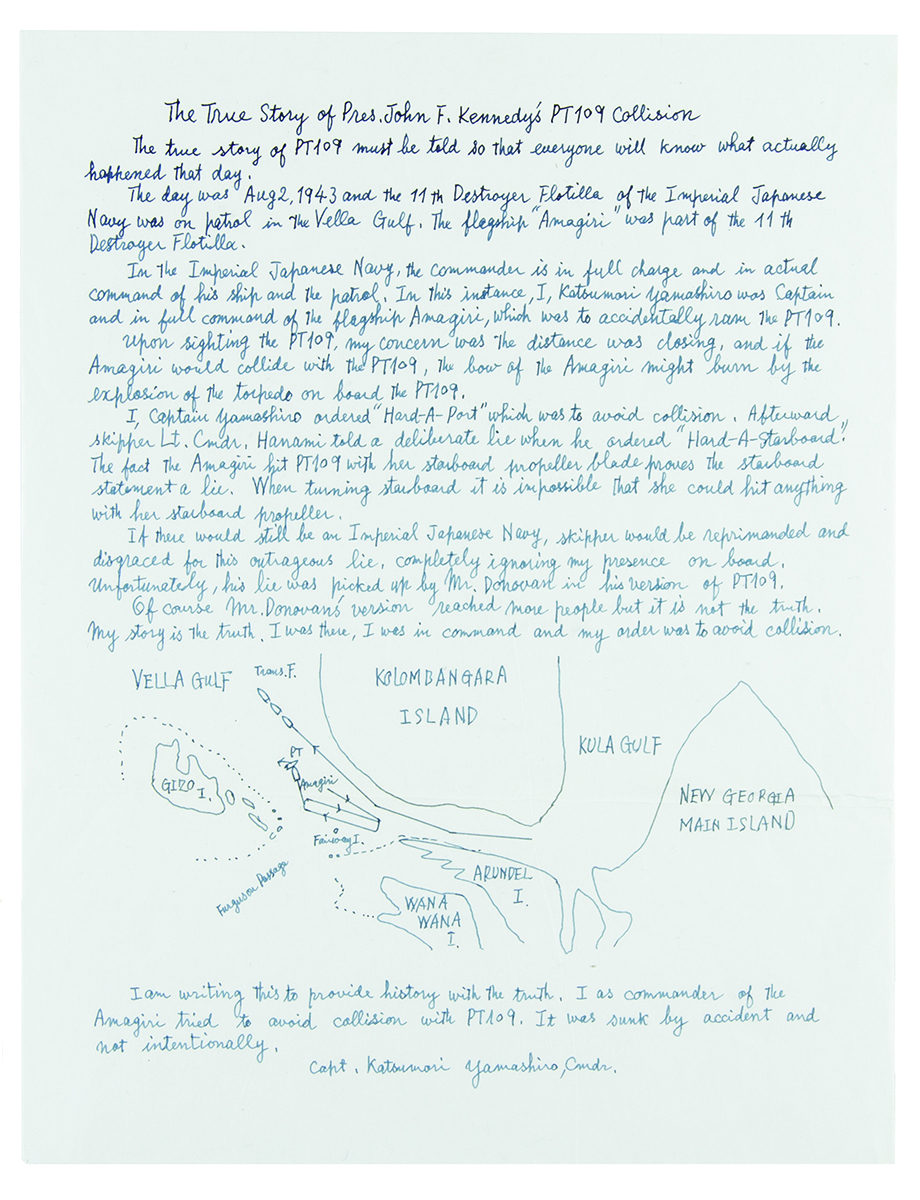 The True Story of Pres. John F. Kennedy's PT109 Collision
The true story of PT109 must be told so that everyone will know what actually
happened that day.
The day was Aug 2, 1943 and the 11th Destroyer Flotilla of the Imperial Japanese
Navy was on patrol in the Vella Gulf. The flagship "Amagiri" was part of the 11th
Destroyer Flotilla.
In the Imperial Japanese Navy, the commander is in full charge and in actual
command of his ship and the patrol. In this instance, I, Katsumori Yamashiro was Captain
and in full command of the flagship Amagiri, which was to accidentally ram the PT109.
Upon sighting the PT109, my concern was the distance was closing, and if the
Amagiri would collide with the PT109, the bow of the Amagiri might burn by the
explosion of the torpedo on board the PT109.
I, Captain Yamashiro ordered "Hard-A-Port" which was to avoid collision. Afterward,
skipper Lt. Cmdr. Hanami told a deliberate lie when he ordered "Hard-A-Starboard."
The fact the Amagiri hit PT109 with her starboard propeller blade proves the starboard
statement a lie. When turning starboard it is impossible that she could hit anything
with her starboard propeller.
If there would still be an Imperial Japanese Navy, skipper would be reprimanded and
disgraced for this outrageous lie, completely ignoring my presence on board.
Unfortunately, his lie was picked up by Mr. Donovan in his version of PT109.
Of course Mr. Donovans' version reached more people but it is not the truth.
My story is the truth. I was there, I was in command and my order was to avoid collision.
VELLA GULF
Trans. F.
KOLOMBANGARA
ISLAND
KULA GULF
PT
Amagiri
GIZO
I.
NEW GEORGIA
MAIN ISLAND
Fairway I.
Ferguson Passage
ARUNDEL
I.
WANA
WANA
I.
I am writing this to provide history with the truth. I as commander of the
Amagiri tried to avoid collision with PT109. It was sunk by accident and
not intentionally.
Capt. Katsumori Yamashiro, Cmdr.